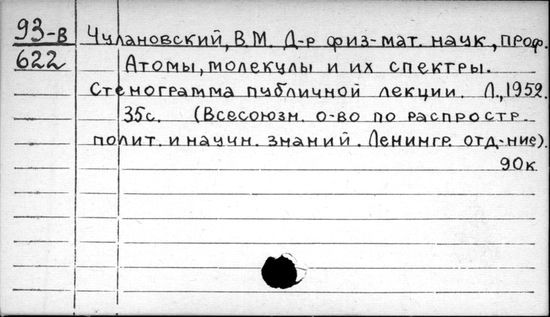 93-В Чулановский, В.М. Д-р физ-мат. наук, проф.
622 Атомы, молекулы и их спектры.
Стенограмма публичной лекции. Л., 1952.
35с. (Всесоюзн. о-во по распростр.
полит. и научн. знаний. Ленингр. отд-ние).
90к